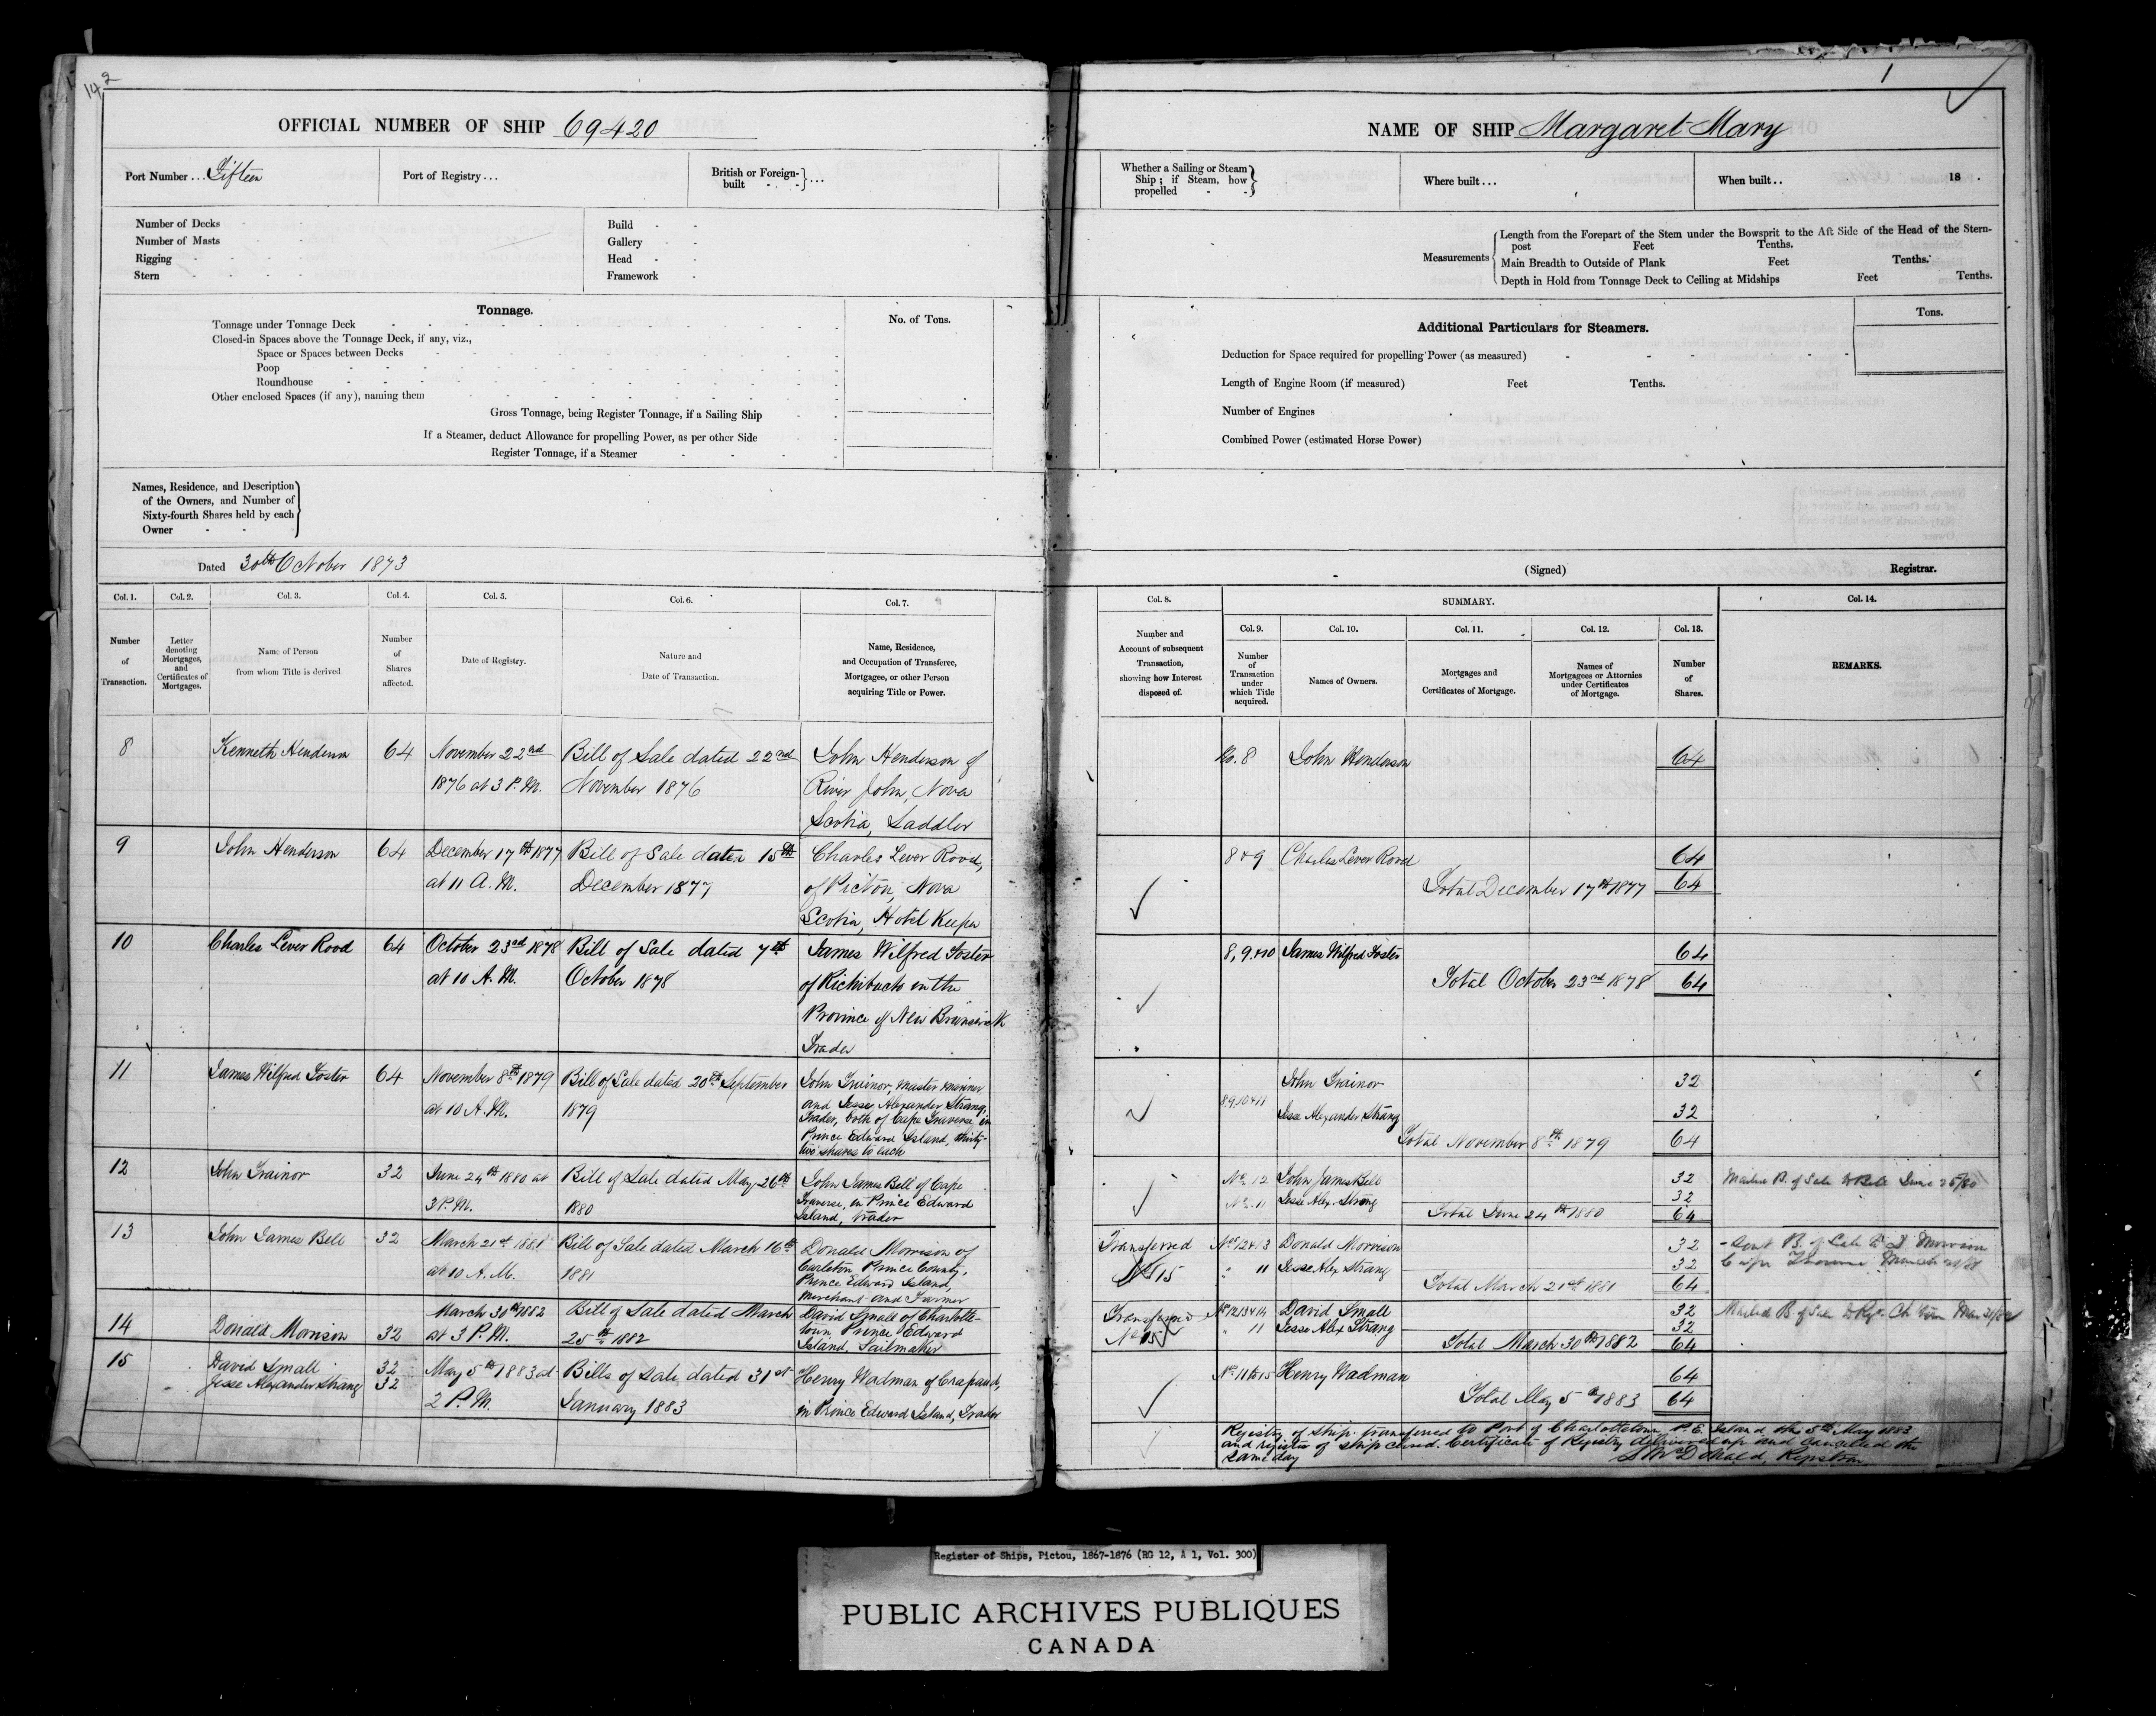 14 2
OFFICIAL NUMBER OF SHIP 69420
Port Number ... Fifteen
Port of Registry ...
British or Foreign-built ...
Number of Decks
Number of Masts
Rigging
Stern
Build
Gallery
Head
Framework
Tonnage.
No. of Tons.
Tonnage under Tonnage Deck
Closed-in Spaces above the Tonnage Deck, if any, viz.,
Space or Spaces between Decks
Poop
Roundhouse
Other enclosed Spaces (if any), naming them
Gross Tonnage, being Register Tonnage, if a Sailing Ship
If a Steamer, deduct Allowance for propelling Power, as per other Side
Register Tonnage, if a Steamer
Names, Residence, and Description
of the Owners, and Number of
Sixty-fourth Shares held by each
Owner
Dated 30th October 1873
Col. 1.
Number
of
Transaction.
Col. 2.
Letter
denoting
Mortgages,
and
Certificates of
Mortgages.
Col. 3.
Name of Person
from whom Title is derived
Col. 4.
Number
of
Shares
affected.
Col. 5.
Date of Registry.
Col. 6.
Nature and
Date of Transaction.
Col. 7.
Name, Residence,
and Occupation of Transferee,
Mortgagee, or other Person
acquiring Title or Power.
8
Kenneth Henderson
64
November 22nd
1876 at 3 P.M.
Bill of Sale dated 22nd
November 1876
John Henderson of
River John, Nova
Scotia, Saddler
9
John Henderson
64
December 17th 1877
at 11 A.M.
Bill of Sale dated 15th
December 1877
Charles Lever Rood,
of Pictou, Nova
Scotia, Hotel Keeper
10
Charles Lever Rood
64
October 23rd 1878
at 10 A.M.
Bill of Sale dated 7th
October 1878
James Wilfred Foster
of Richibucto in the
Province of New Brunswick
Trader
11
James Wilfred Foster
64
November 8th 1879
at 10 A.M.
Bill of Sale dated 20th September
1879
John Trainor, Master Mariner
and Jesse Alexander Strang,
Trader, both of Cape Traverse in
Prince Edward Island, thirty-
two shares to each
12
John Trainor
32
June 24th 1880 at
3 P.M.
Bill of Sale dated May 26th
1880
John James Bell of Cape
Traverse, in Prince Edward
Island, trader
13
John James Bell
32
March 21st 1881
at 10 A.M.
Bill of Sale dated March 16th
1881
Donald Morrison of
Carleton Prince County,
Prince Edward Island,
Merchant and Farmer
14
Donald Morrison
32
March 30th 1882
at 3 P.M.
Bill of Sale dated March
25th 1882
David Small of Charlotte-
town, Prince Edward
Island, Sailmaker
15
David Small
Jesse Alexander Strang
32
32
May 5th 1883 at
2 P.M.
Bills of Sale dated 31st
January 1883
Henry Wadman of Crapaud,
in Prince Edward Island, Trader
1
NAME OF SHIP Margaret Mary
Whether a Sailing or Steam
Ship; if Steam, how
propelled
Where built ...
When built ..
18 .
Measurements
Length from the Forepart of the Stem under the Bowsprit to the Aft Side of the Head of the Stern-
post Feet Tenths.
Main Breadth to Outside of Plank Feet Tenths.
Depth in Hold from Tonnage Deck to Ceiling at Midships Feet Tenths.
Additional Particulars for Steamers.
Tons.
Deduction for Space required for propelling Power (as measured)
Length of Engine Room (if measured) Feet Tenths.
Number of Engines
Combined Power (estimated Horse Power)
(Signed) Registrar.
Col. 8.
Number and
Account of subsequent
Transaction,
showing how Interest
disposed of.
SUMMARY.
Col. 9.
Number
of
Transaction
under
which Title
acquired.
Col. 10.
Names of Owners.
Col. 11.
Mortgages and
Certificates of Mortgage.
Col. 12.
Names of
Mortgagees or Attornies
under Certificates
of Mortgage.
Col. 13.
Number
of
Shares.
Col. 14.
REMARKS.
No. 8 John Henderson 64
8 & 9 Charles Lever Rood 64
Total December 17th 1877 64
8, 9 & 10 James Wilfred Foster 64
Total October 23rd 1878 64
John Trainor 32
8 9 10 & 11
Jesse Alexander Strang 32
Total November 8th 1879 64
No. 12 John James Bell 32
No. 11 Jesse Alex. Strang 32
Total June 24th 1880 64
Mailed B. of Sale to Bell June 25/80
Transferred
No 15
Nos 12 & 13 Donald Morrison 32
" 11 Jesse Alex Strang 32
Total March 21st 1881 64
Sent B. of Sale to D Morrison
Cape Traverse March 21/81
Transferred
No 15
Nos 12 13 & 14 David Small 32
" 11 Jesse Alex Strang 32
Total March 30th 1882 64
Mailed B of Sale to Regr. Ch Town Mar 31/82
Nos 11 to 15 Henry Wadman 64
Total May 5th 1883 64
Registry of Ship transferred to Port of Charlottetown, P.E. Island the 5th May 1883
and register of ship closed. Certificate of Registry delivered up and cancelled the
same day
D McDonald, Registrar
Register of Ships, Pictou, 1867-1876 (RG 12, A 1, Vol. 300)
PUBLIC ARCHIVES PUBLIQUES
CANADA